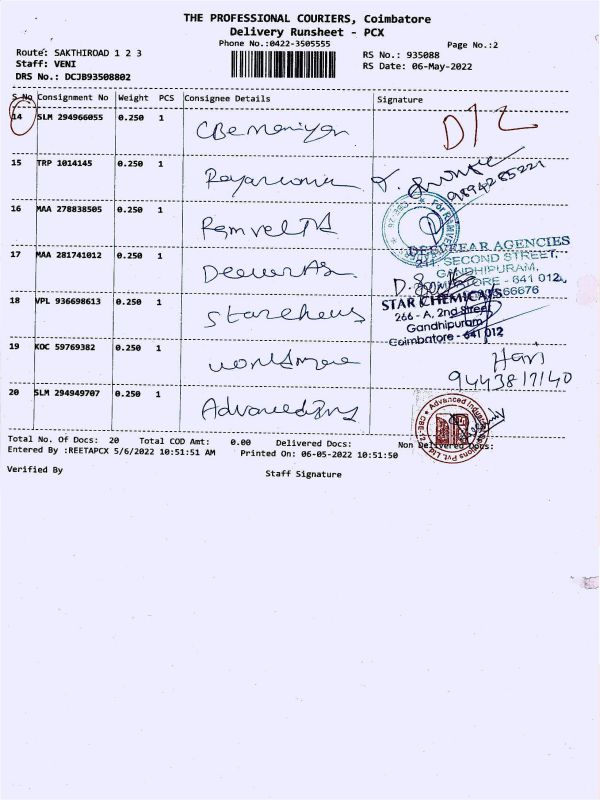 THE PROFESSIONAL COURIERS, Coimbatore
Delivery Runsheet - PCX
Phone No.:0422-3505555
Page No.:2
Route: SAKTHIROAD 1 2 3
Staff: VENI
DRS No.: DCJB93508802
RS No.: 935088
RS Date: 06-May-2022
S No Consignment No Weight PCS Consignee Details Signature
14 SLM 294966055 0.250 1
15 TRP 1014145 0.250 1
9894285221
16 MAA 278838505 0.250 1 Ramvel
17 MAA 281741012 0.250 1
DEEVEEAR AGENCIES
211, SECOND STREET,
GANDHIPURAM,
COIMBATORE - 641 012,
18 VPL 936698613 0.250 1 Starchems
STAR CHEMICALS
266 - A, 2nd Street
Gandhipuram
Coimbatore - 641 012
19 KOC 59769382 0.250 1
Hari
9443817140
20 SLM 294949707 0.250 1
Total No. Of Docs: 20 Total COD Amt: 0.00 Delivered Docs: Non Delivered Docs:
Entered By :REETAPCX 5/6/2022 10:51:51 AM Printed On: 06-05-2022 10:51:50
Verified By
Staff Signature